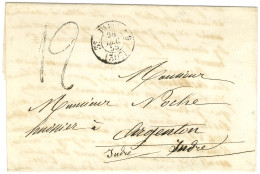 12
Monsieur
Monsieur Roche
huissier à
Argenton
Indre Indre